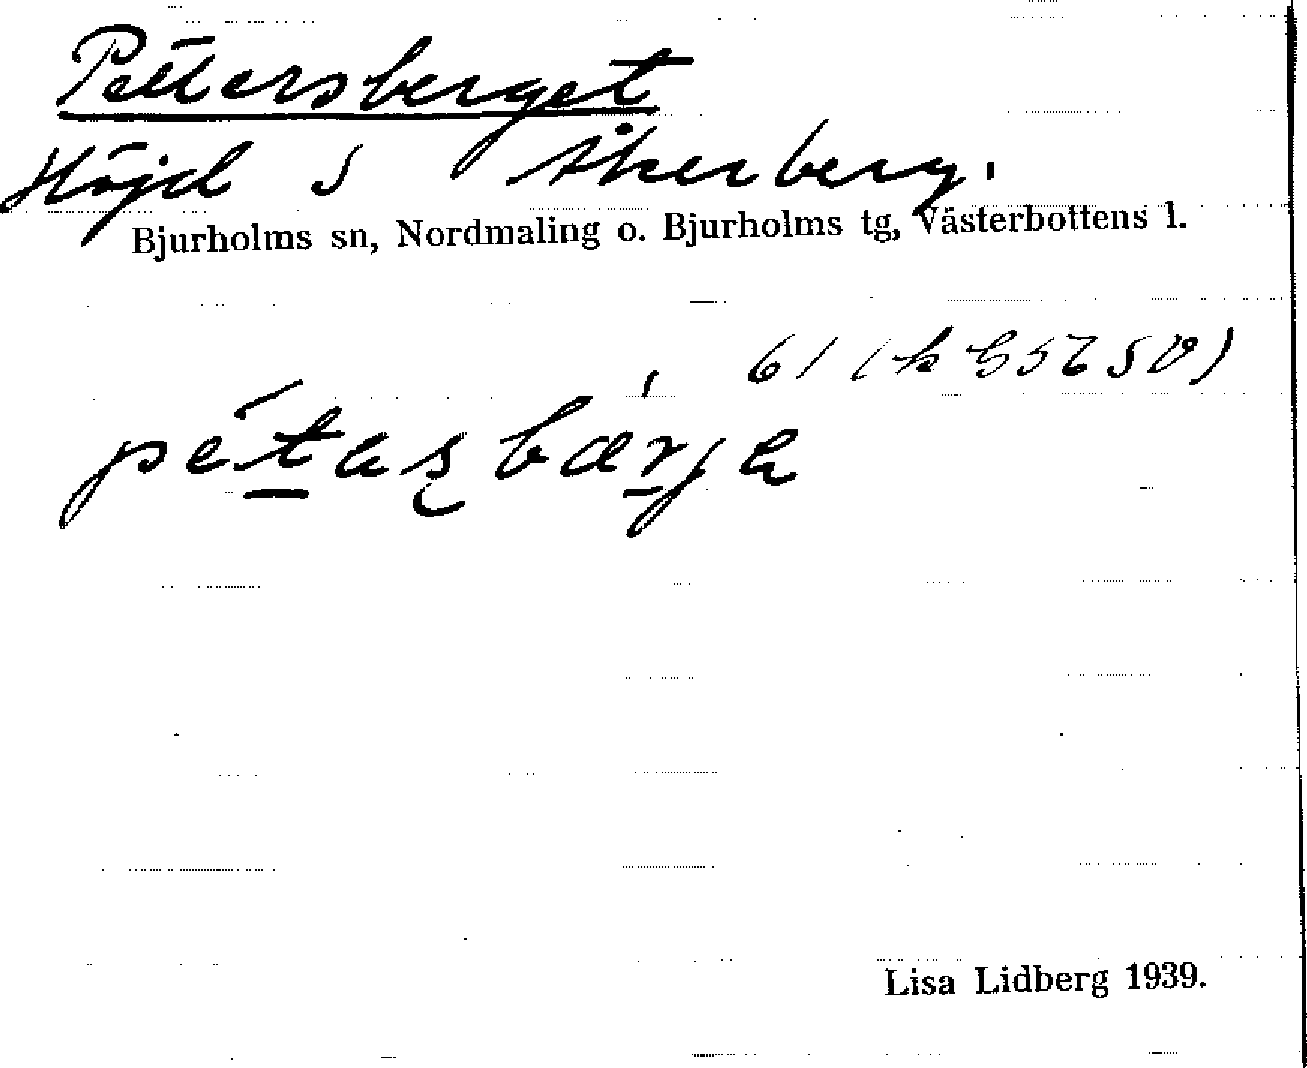 Pettersberget
Höjd S Åkerberg.
Bjurholms sn, Nordmaling o. Bjurholms tg, Västerbottens l.
61
pétasbærja
Lisa Lidberg 1939.